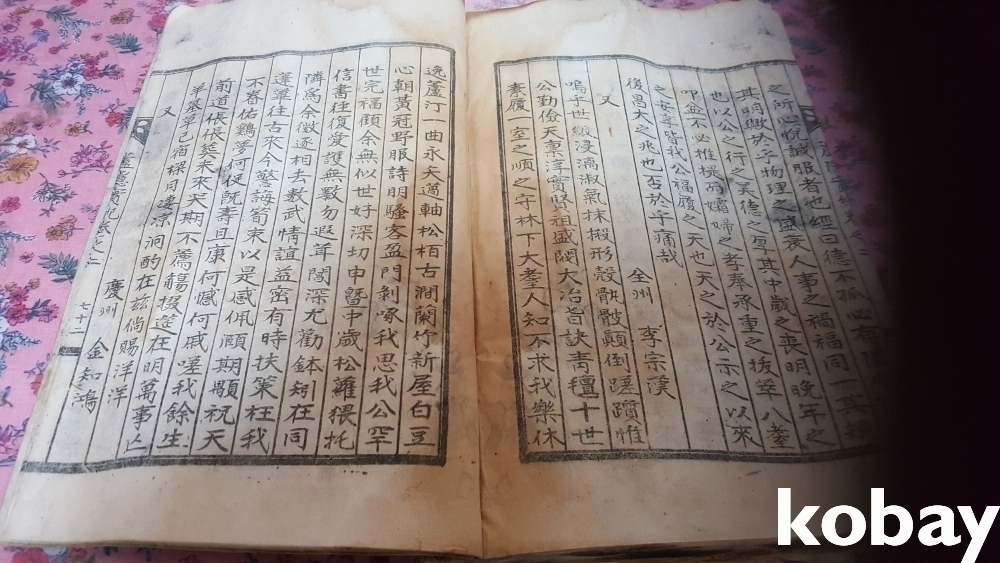 之所心悅誠服者也經曰德不孤必有
其明興於乎物理之盛衰人事之禍福同一其
也以公之行之美德之厚其中歲之喪明晚年之
叩盆不必推橈而孀婦之孝奉承重之拔萃八耋
之安享皆我公福履之天也天之於公示之以來
後昌大之兆也否於乎痛哉
全州 李宗漢
又
嗚乎世級浸漓淑氣抹摋形殼骯髒顛倒蹉躓惟
公勤儉天稟淳實賢祖盛閥大冶旨訣靑氊十世
素履一室之順之守林下大耋人知不求我樂休
逸蘆汀一曲永矢薖軸松栢古澗蘭竹新屋白豆
心朝黃冠野服詩朋騷客盈門剝啄我思我公罕
世完福顧余無似世好深切申曁中歲松蘿猥托
信書往復愛護無斁勿遐茸闒深尤勸鉢矧在同
隣爲余徵逐相去數武情誼益密有時扶策枉我
蓬蓽往古來今警誨荀束以是感佩頤期顒祝天
不眷佑鷄夢何便旣壽且康何慽何戚嗟我餘生
前道倀倀葬未來哭期不薦觴掇筵在明萬事亡
羊墓草已宿樑月邊凉泂酌在玆倘賜洋洋
又
慶州 金知鴻
七十二
kobay